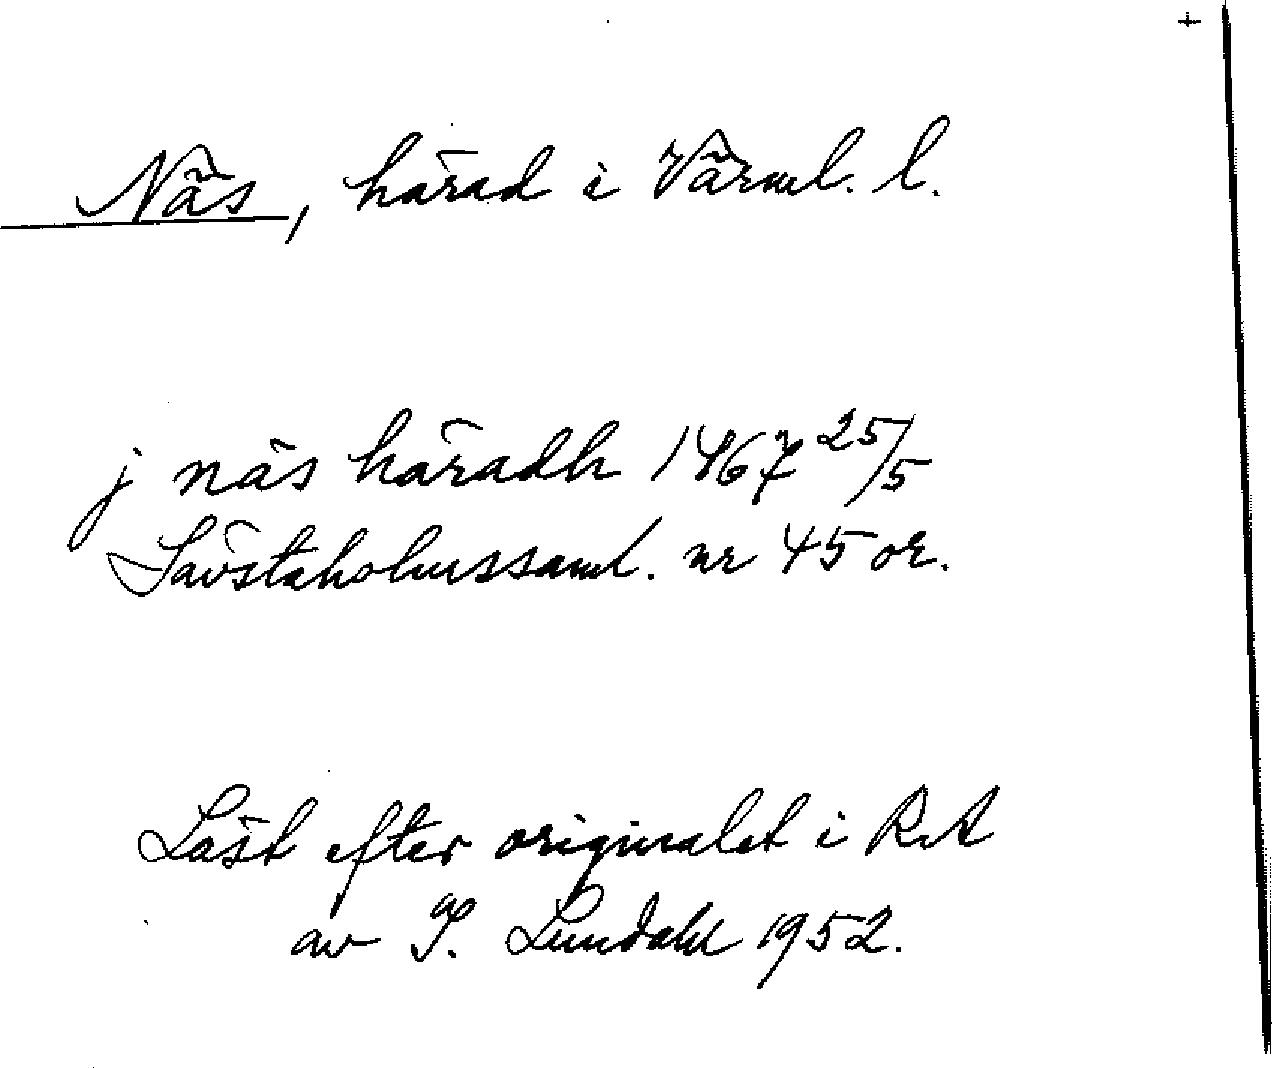 Näs, härad i Värml. l.
j näs häradh 1467 25/5
Sävstaholmssaml. nr 45 or.
Läst efter originalet i RA
av I. Lundahl 1952.